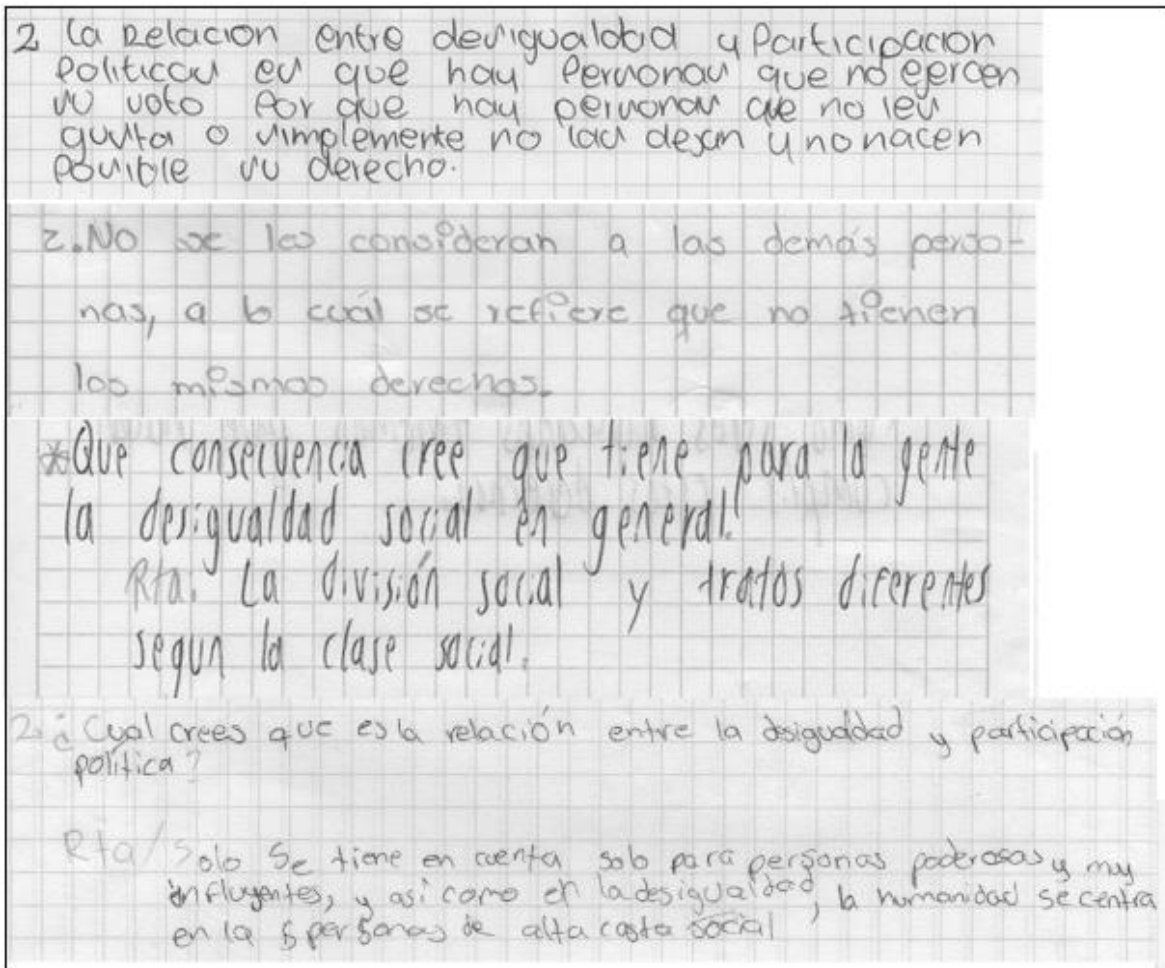 2 La Relacion entre desigualdad y Participacion
Politicas es que hay Personas que no ejercen
su voto Por que hay personas que no les
gusta o simplemente no las dejan y no hacen
Posible su derecho.
2. No se les consideran a las demás perso-
nas, a lo cuál se refiere que no tienen
los mismos derechos.
*Que consecuencia cree que tiene para la gente
la desigualdad social en general.
Rta: La división social y tratos diferentes
segun la clase social.
2. ¿Cual crees que es la relación entre la desigualdad y participación
política?
Rta/ Solo Se tiene en cuenta solo para personas poderosas y muy
influyentes, y así como en la desigualdad, la humanidad se centra
en la s personas de alta casta social